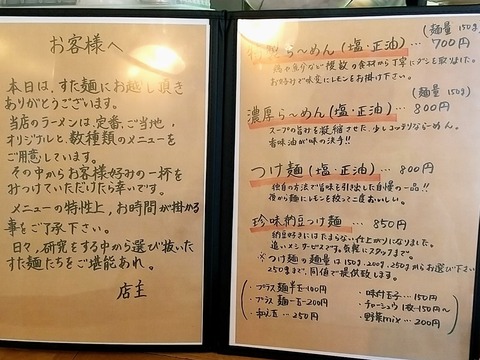 お客様へ
本日は、すた麺にお越し頂き
ありがとうございます。
当店のラーメンは、定番、ご当地、
オリジナルと、数種類のメニューを
ご用意しています。
その中からお客様好みの一杯を
みつけていただけたら幸いです。
メニューの特性上、お時間が掛かる
事をご了承下さい。
日々、研究をする中から選び抜いた
すた麺たちをご堪能あれ。
店主
(麺量 150g)
らーめん(塩・正油)… 700円
鶏や魚介など複数の食材から丁寧にダシを取りました。
お好みで味変にレモンをお掛け下さい。
(麺量 150g)
濃厚らーめん(塩・正油)… 800円
スープの旨みを凝縮させた、少しコッテリならーめん。
香味油が味の決手!!
つけ麺(塩・正油)… 800円
独自の方法で旨味を引き出した自慢の一品!!
後から麺にレモンを絞っても良いでし。
珍味納豆つけ麺… 850円
納豆好きにはたまらない仕上がりになりました。
追いメシサービスです。気軽にスタッフまで。
※つけ麺の麺量は150g.200g.250gからお選び下さい
250gまで、同値で提供致します。
・プラス麺半玉…100円
・プラス麺一玉…200円
・和え玉…250円
・味付玉子…150円
・チャーシュウ1枚…150円〜
・野菜mix…200円